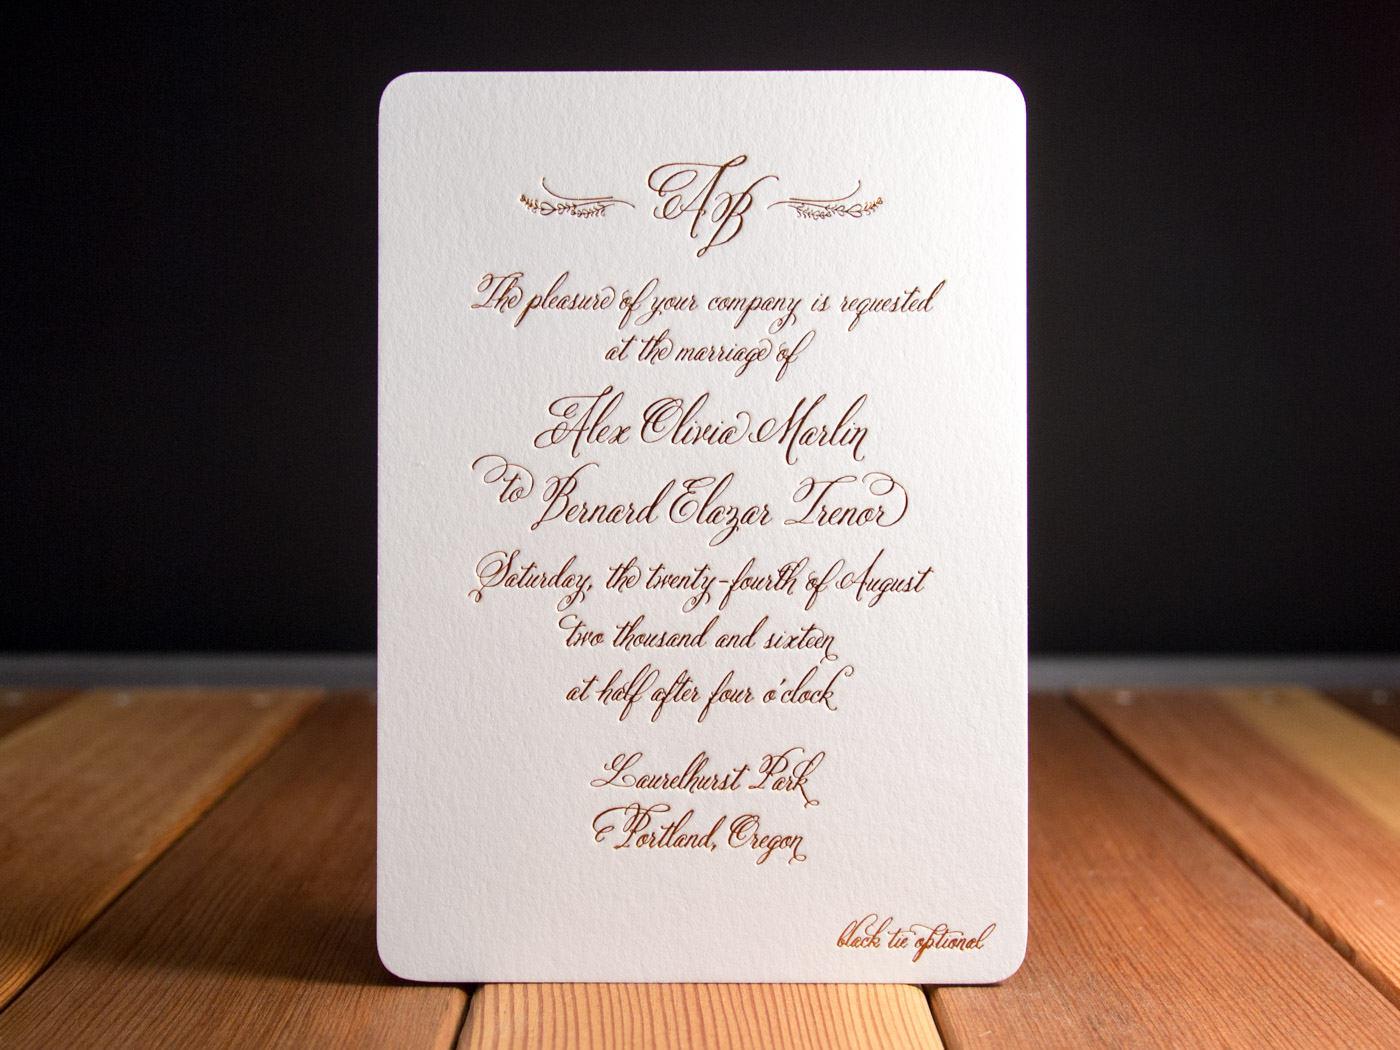 AB
The pleasure of your company is requested
at the marriage of
Alex Olivia Marlin
to Bernard Elazar Trenor
Saturday, the twenty-fourth of August
two thousand and sixteen
at half after four o'clock
Laurelhurst Park
Portland, Oregon
black tie optional